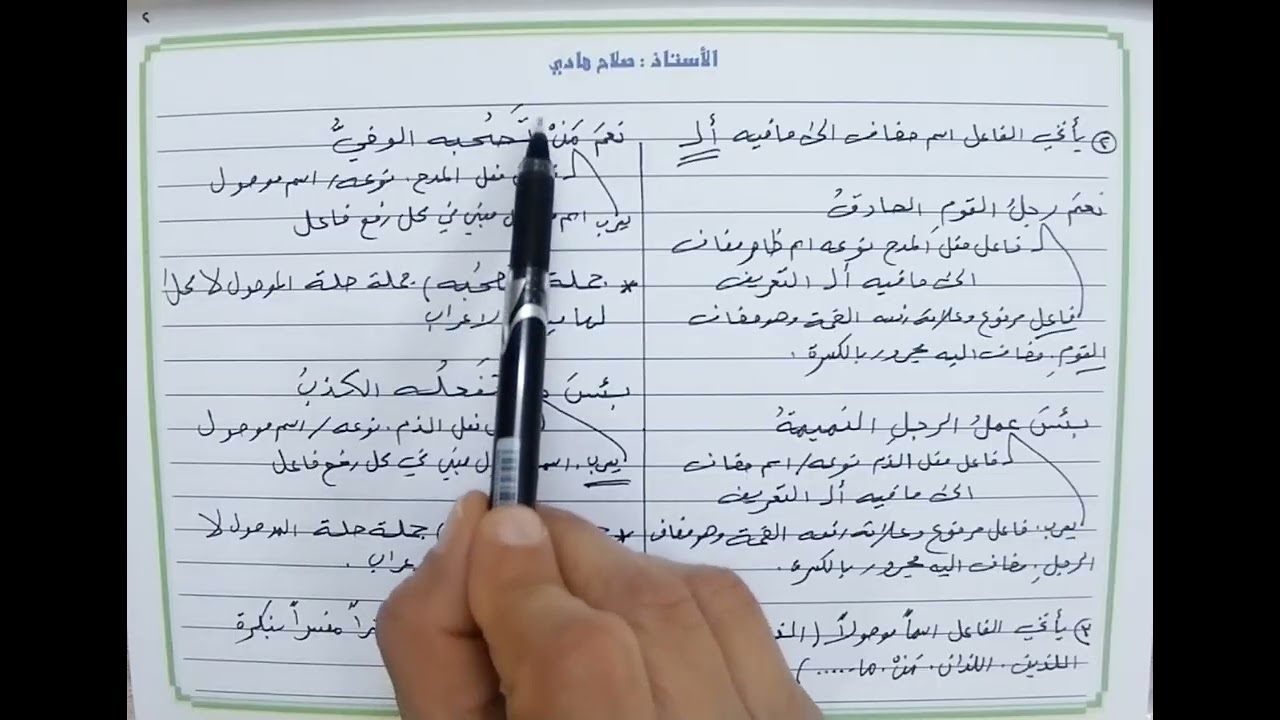 ٢
الأستاذ : صلاح هادي
② يأتي الفاعل اسم مضاف الى مافيه أل
نعمَ رجلُ القومِ الصادقُ
فاعل فعل المدح نوعه اسم ظاهر مضاف
الى مافيه أل التعريف
فاعل مرفوع وعلامة رفعه الضمة وهو مضاف
القومِ. مضاف اليه مجرور بالكسرة.
بئسَ عملُ الرجلِ النميمةُ
فاعل فعل الذم نوعه/ اسم مضاف
الى مافيه أل التعريف
يعرب. فاعل مرفوع وعلامة رفعه الضمة وهو مضاف
الرجلِ. مضاف اليه مجرور بالكسرة.
③ يأتي الفاعل اسماً موصولاً
اللذين. اللذان. مَنْ. ما.....)
نعمَ مَنْ تَصْحبه الوفيُّ
فعل المدح. نوعه/ اسم موصول
يعرب اسم مبني في محل رفع فاعل
* جملة جملة صلة الموصول لا محل
لها الاعراب
بئسَ تَفعلُه الكذبُ
فعل الذم. نوعه/ اسم موصول
يعرب. اسم مبني في محل رفع فاعل
* جملة صلة الموصول لا
مفسراً بنكرة